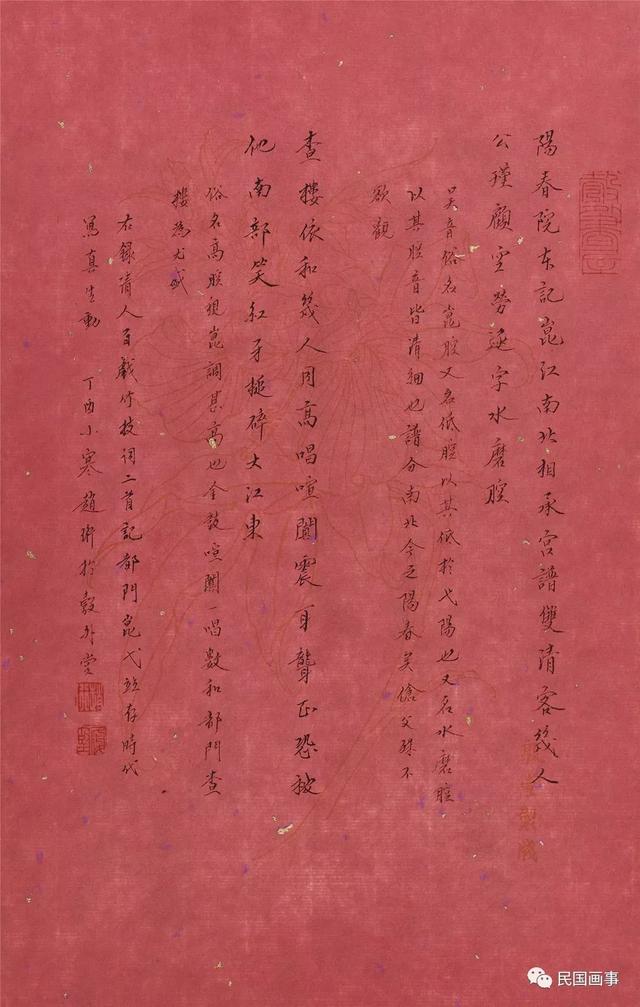 陽春院本記崑江南北相承宮譜雙清客幾人
公瑾顧空勞逐字水磨腔
吴音俗名崑腔又名低腔以其低於弋陽也又名水磨腔
以其腔音皆清細也譜分南北今之陽春矣傖父殊不
欲觀
查樓依和幾人同高唱喧闐震耳聾正恐被
他南部笑紅牙搥碎大江東
俗名高腔視崑調甚高也金鼓喧闐一唱數和都門查
樓為尤盛
右錄清人百戲竹枝詞二首記都門崑弋並存時代
寫真生動 丁酉小寒趙珩於彀外堂
民国画事